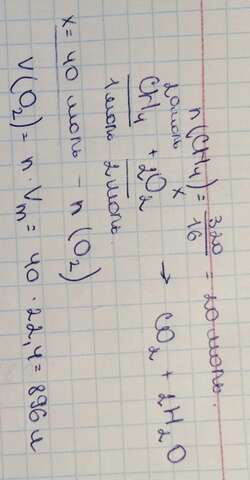 n(CH₄) = 320/16 = 20 моль.
20моль x
CH₄ + 2O₂ → CO₂ + 2H₂O
1моль 2моль
x = 40 моль - n(O₂)
V(O₂) = n · Vm = 40 · 22,4 = 896 л